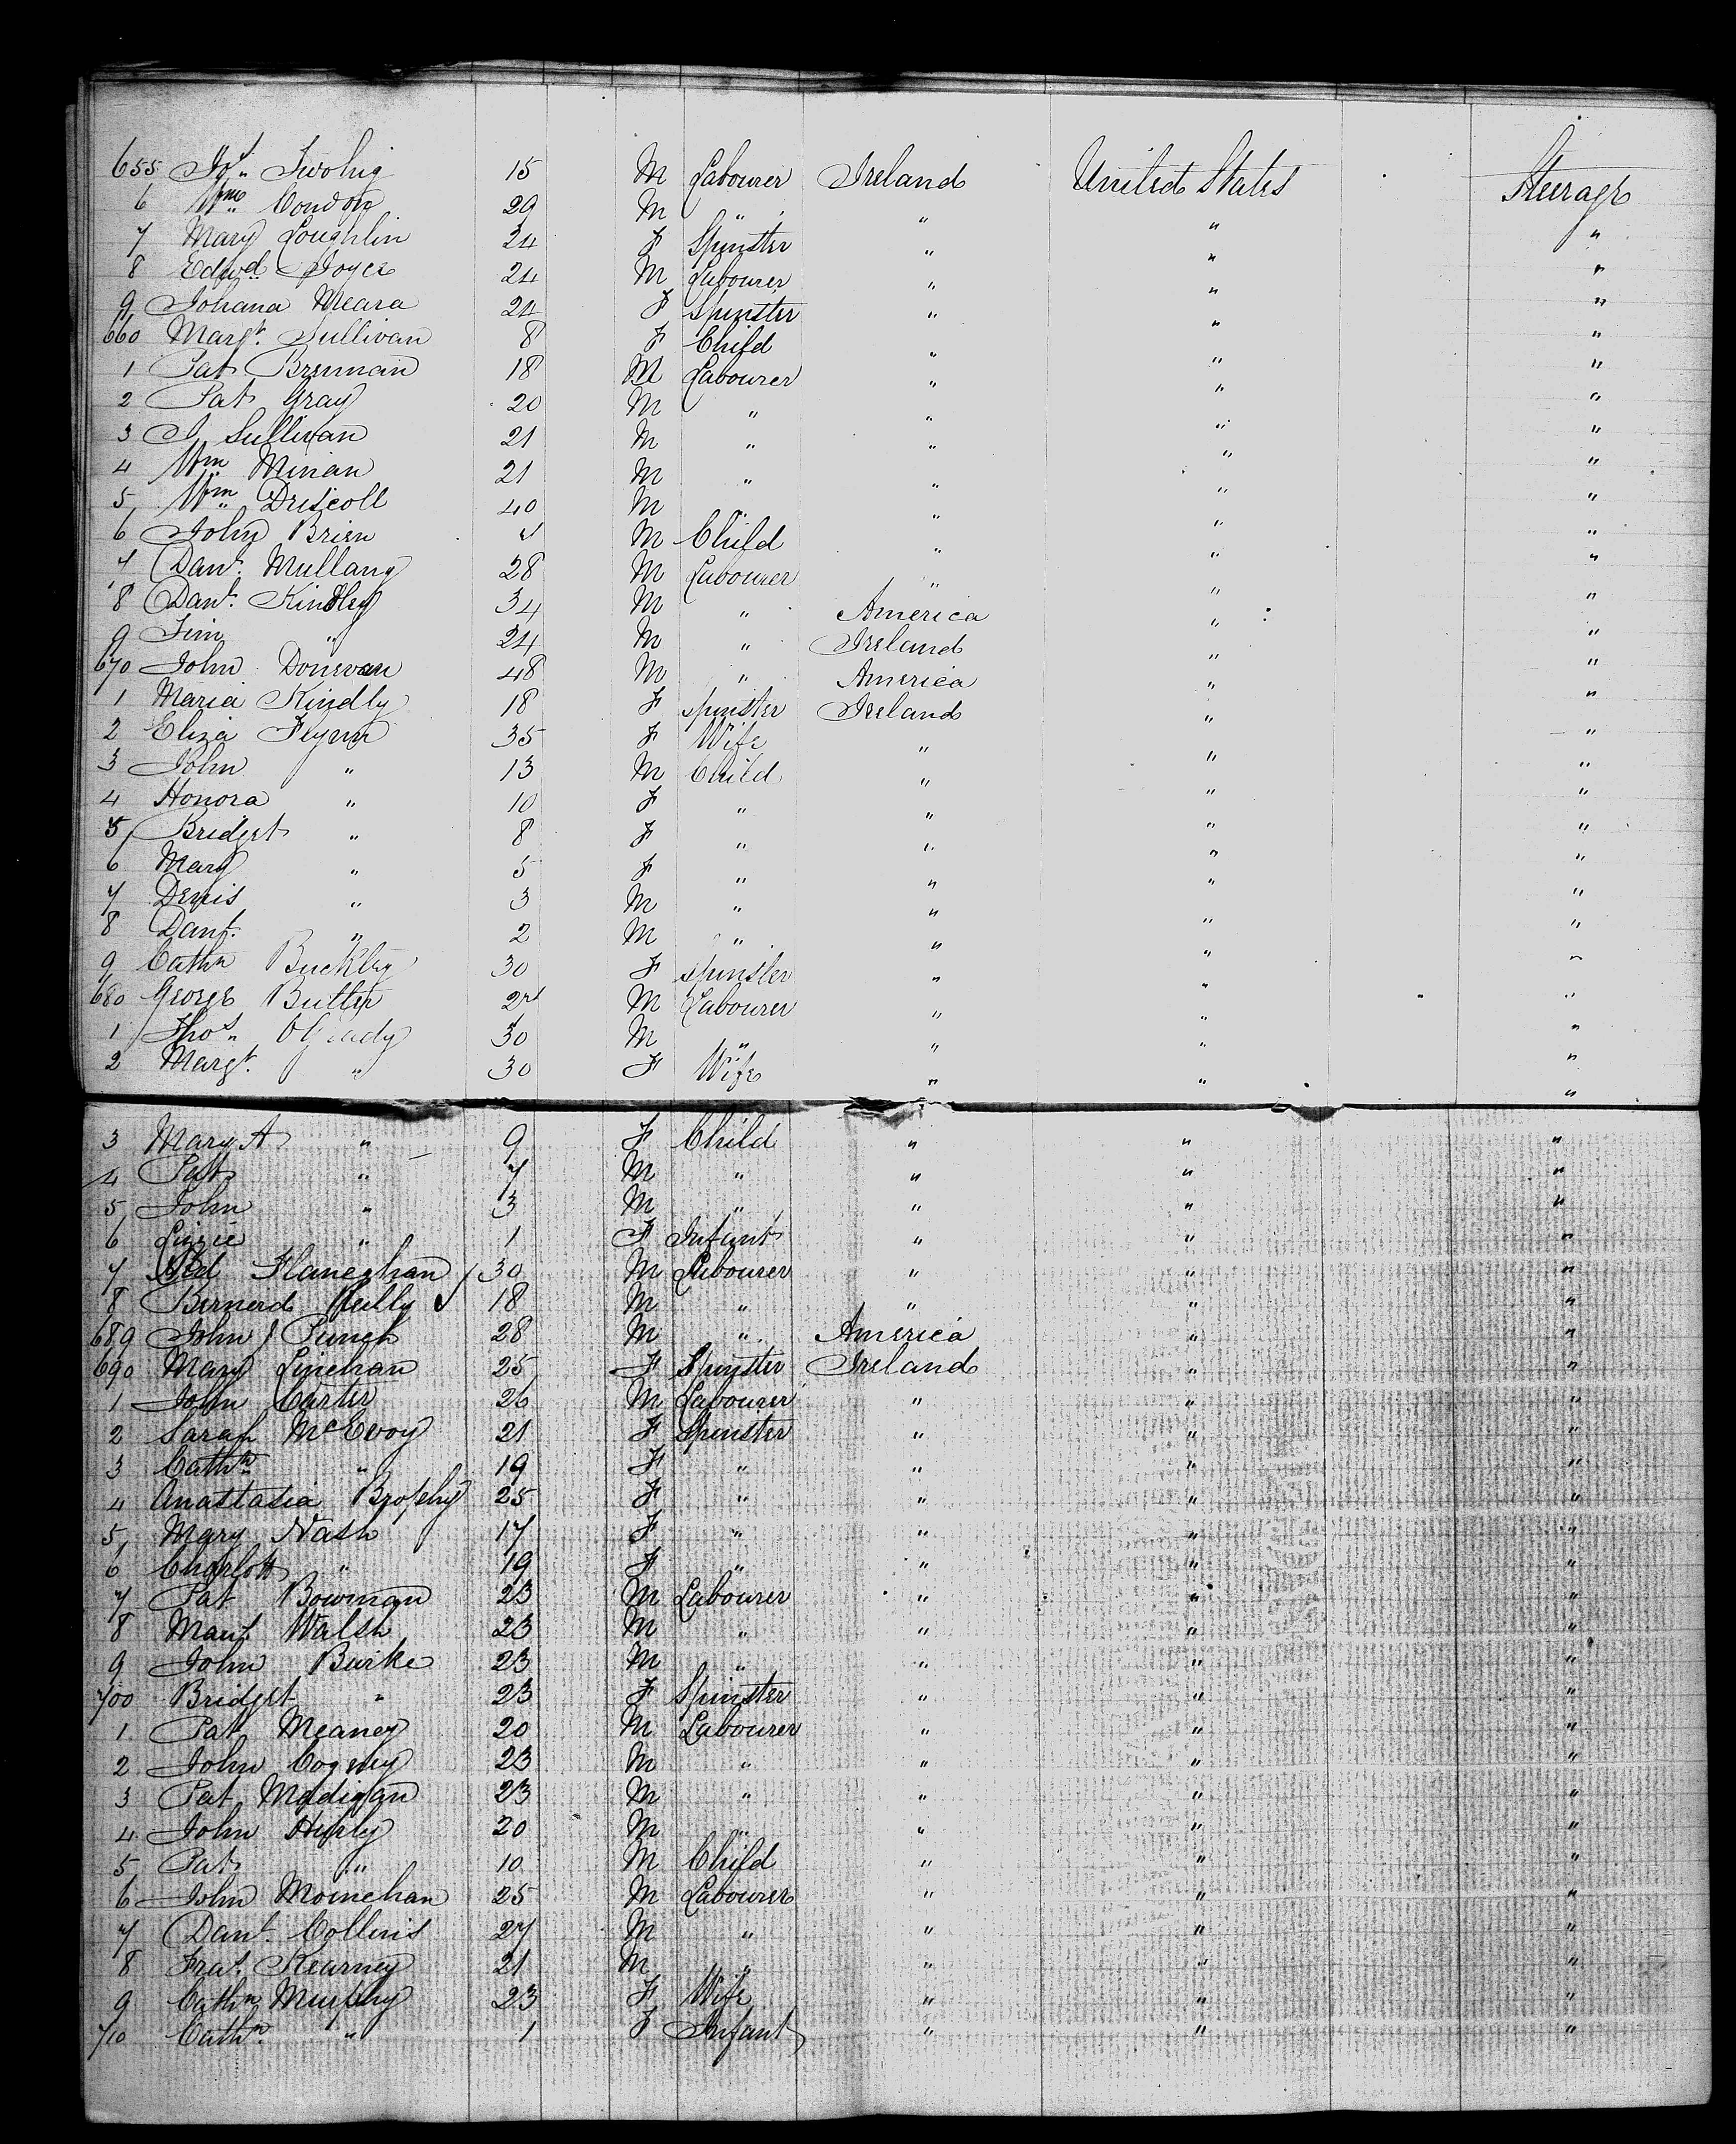 655 Jos. Twohig 15 M Labourer Ireland United States Steerage
6 Wm. Condon 29 M " " " "
7 Mary Loughlin 24 F Spinster " " "
8 Edwd. Joyce 24 M Labourer " " "
9 Johana Meara 24 F Spinster " " "
660 Margt. Sullivan 8 F Child " " "
1 Pat Brennan 18 M Labourer " " "
2 Pat Gray 20 M " " " "
3 J Sullivan 21 M " " " "
4 Wm Minian 21 M " " " "
5 Wm. Driscoll 40 M " " " "
6 John Brien M Child " " "
7 Danl. Mullany 28 M Labourer " " "
8 Danl. Kindley 34 M " America " "
9 Tim " 24 M " Ireland " "
670 John Donovan 48 M " America " "
1 Maria Kindly 18 F Spinster Ireland " "
2 Eliza Flynn 35 F Wife " " "
3 John " 13 M Child " " "
4 Honora " 10 F " " " "
5 Bridget " 8 F " " " "
6 Mary " 5 F " " " "
7 Denis " 3 M " " " "
8 Danl. " 2 M " " " "
9 Cathn Buckley 30 F Spinster " " "
680 George Butler M Labourer " " "
1 Thos. OGrady 30 M " " " "
2 Margt. " 30 F Wife " " "
3 Mary A " 9 F Child " " "
4 Pat " 7 M " " " "
5 John " 3 M " " " "
6 Lizzie " 1 F Infant " " "
7 Flaneghan 30 M Labourer " " "
8 Bernerd Reilly 18 M " " " "
689 John J Punch 28 M " America " "
690 Mary Linehan 25 F Spinster Ireland " "
1 John Carter 26 M Labourer " " "
2 Sarah McEvoy 21 F Spinster " " "
3 Cathn. " 19 F " " " "
4 Anastasia Brophy 25 F " " " "
5 Mary Nash 17 F " " " "
6 Charlott " 19 F " " " "
7 Pat Bowman 23 M Labourer " " "
8 Maut. Walsh 23 M " " " "
9 John Burke 23 M " " " "
700 Bridget " 23 F Spinster " " "
1 Pat Meaney 20 M Labourer " " "
2 John Cogney 23 M " " " "
3 Pat Madigan 23 M " " " "
4 John Hurly 20 M " " " "
5 Pat " 10 M Child " " "
6 John Moinehan 25 M Labourer " " "
7 Danl. Collins 27 M " " " "
8 Fras. Kearney 21 M " " " "
9 Cathn Murphy 23 F Wife " " "
710 Cathn. " 1 F Infant " " "